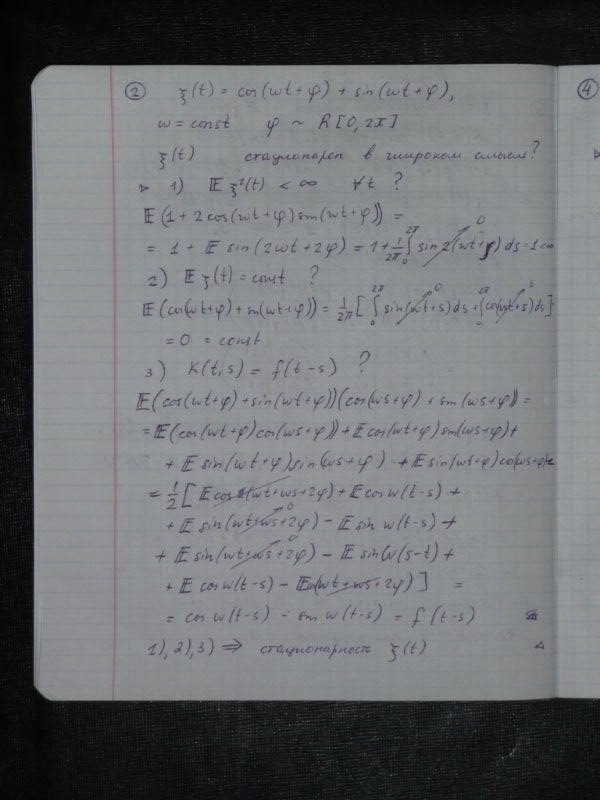 ② ξ(t) = cos(wt+φ) + sin(wt+φ),
④
w = const φ ~ R[0, 2π]
ξ(t) стационарен в широком смысле?
▷ 1) 𝔼 ξ²(t) < ∞ ∀t ?
𝔼 (1 + 2cos(wt+φ)sin(wt+φ)) =
= 1 + 𝔼 sin(2wt+2φ) = 1 + 1/2π ∫₀^2π sin 2(wt+s) ds = 1 < ∞
2) 𝔼 ξ(t) = const ?
𝔼 (cos(wt+φ) + sin(wt+φ)) = 1/2π [ ∫₀^2π sin(wt+s) ds + ∫₀^2π cos(wt+s) ds ]
= 0 = const
3) K(t,s) = f(t-s) ?
𝔼 (cos(wt+φ) + sin(wt+φ))(cos(ws+φ) + sin(ws+φ)) =
= 𝔼 (cos(wt+φ)cos(ws+φ)) + 𝔼 cos(wt+φ)sin(ws+φ) +
+ 𝔼 sin(wt+φ)sin(ws+φ) + 𝔼 sin(wt+φ)cos(ws+φ) =
= 1/2 [ 𝔼 cos(wt+ws+2φ) + 𝔼 cos w(t-s) +
+ 𝔼 sin(wt+ws+2φ) - 𝔼 sin w(t-s) +
+ 𝔼 sin(wt+ws+2φ) - 𝔼 sin(w(s-t) +
+ 𝔼 cos w(t-s) - 𝔼 cos(wt+ws+2φ) ] =
= cos w(t-s) - sin w(t-s) = f(t-s)
1), 2), 3) ⇒ стационарность ξ(t) ◁